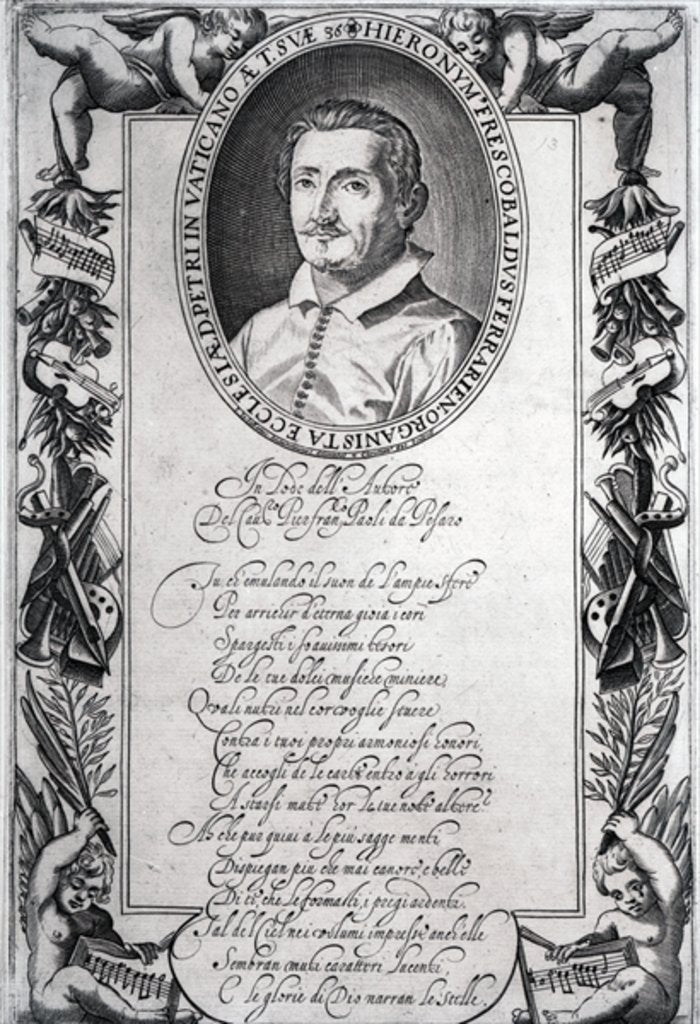 HIERONYM' FRESCOBALDVS FERRARIEN. ORGANISTA ECCLESIÆ D. PETRI IN VATICANO ÆT. SVÆ 36
13
In Lode dell' Autore
Del Cau.co Pierfran.co Paoli da Pesaro
Tu, ch'emulando il suon de l'ampie sfere
Per arrichir d'eterna gioia i cori
Spargesti i soauissimi tesori
De le tue dolci musiche miniere,
Quali nutri nel cor voglie seuere
Contra i tuoi propri armoniosi honori,
Che accogli de le carte entro à gli horrori
A starsi mute hor le tue note altere?
Ah che pur quiui à le più sagge menti
Dispiegan più che mai canore, e belle
Di te, che le formasti, i pregi ardenti.
Tal del Ciel nei volumi impresse anch'elle
Sembran muti caratteri lucenti,
E le glorie di Dio narran le stelle.